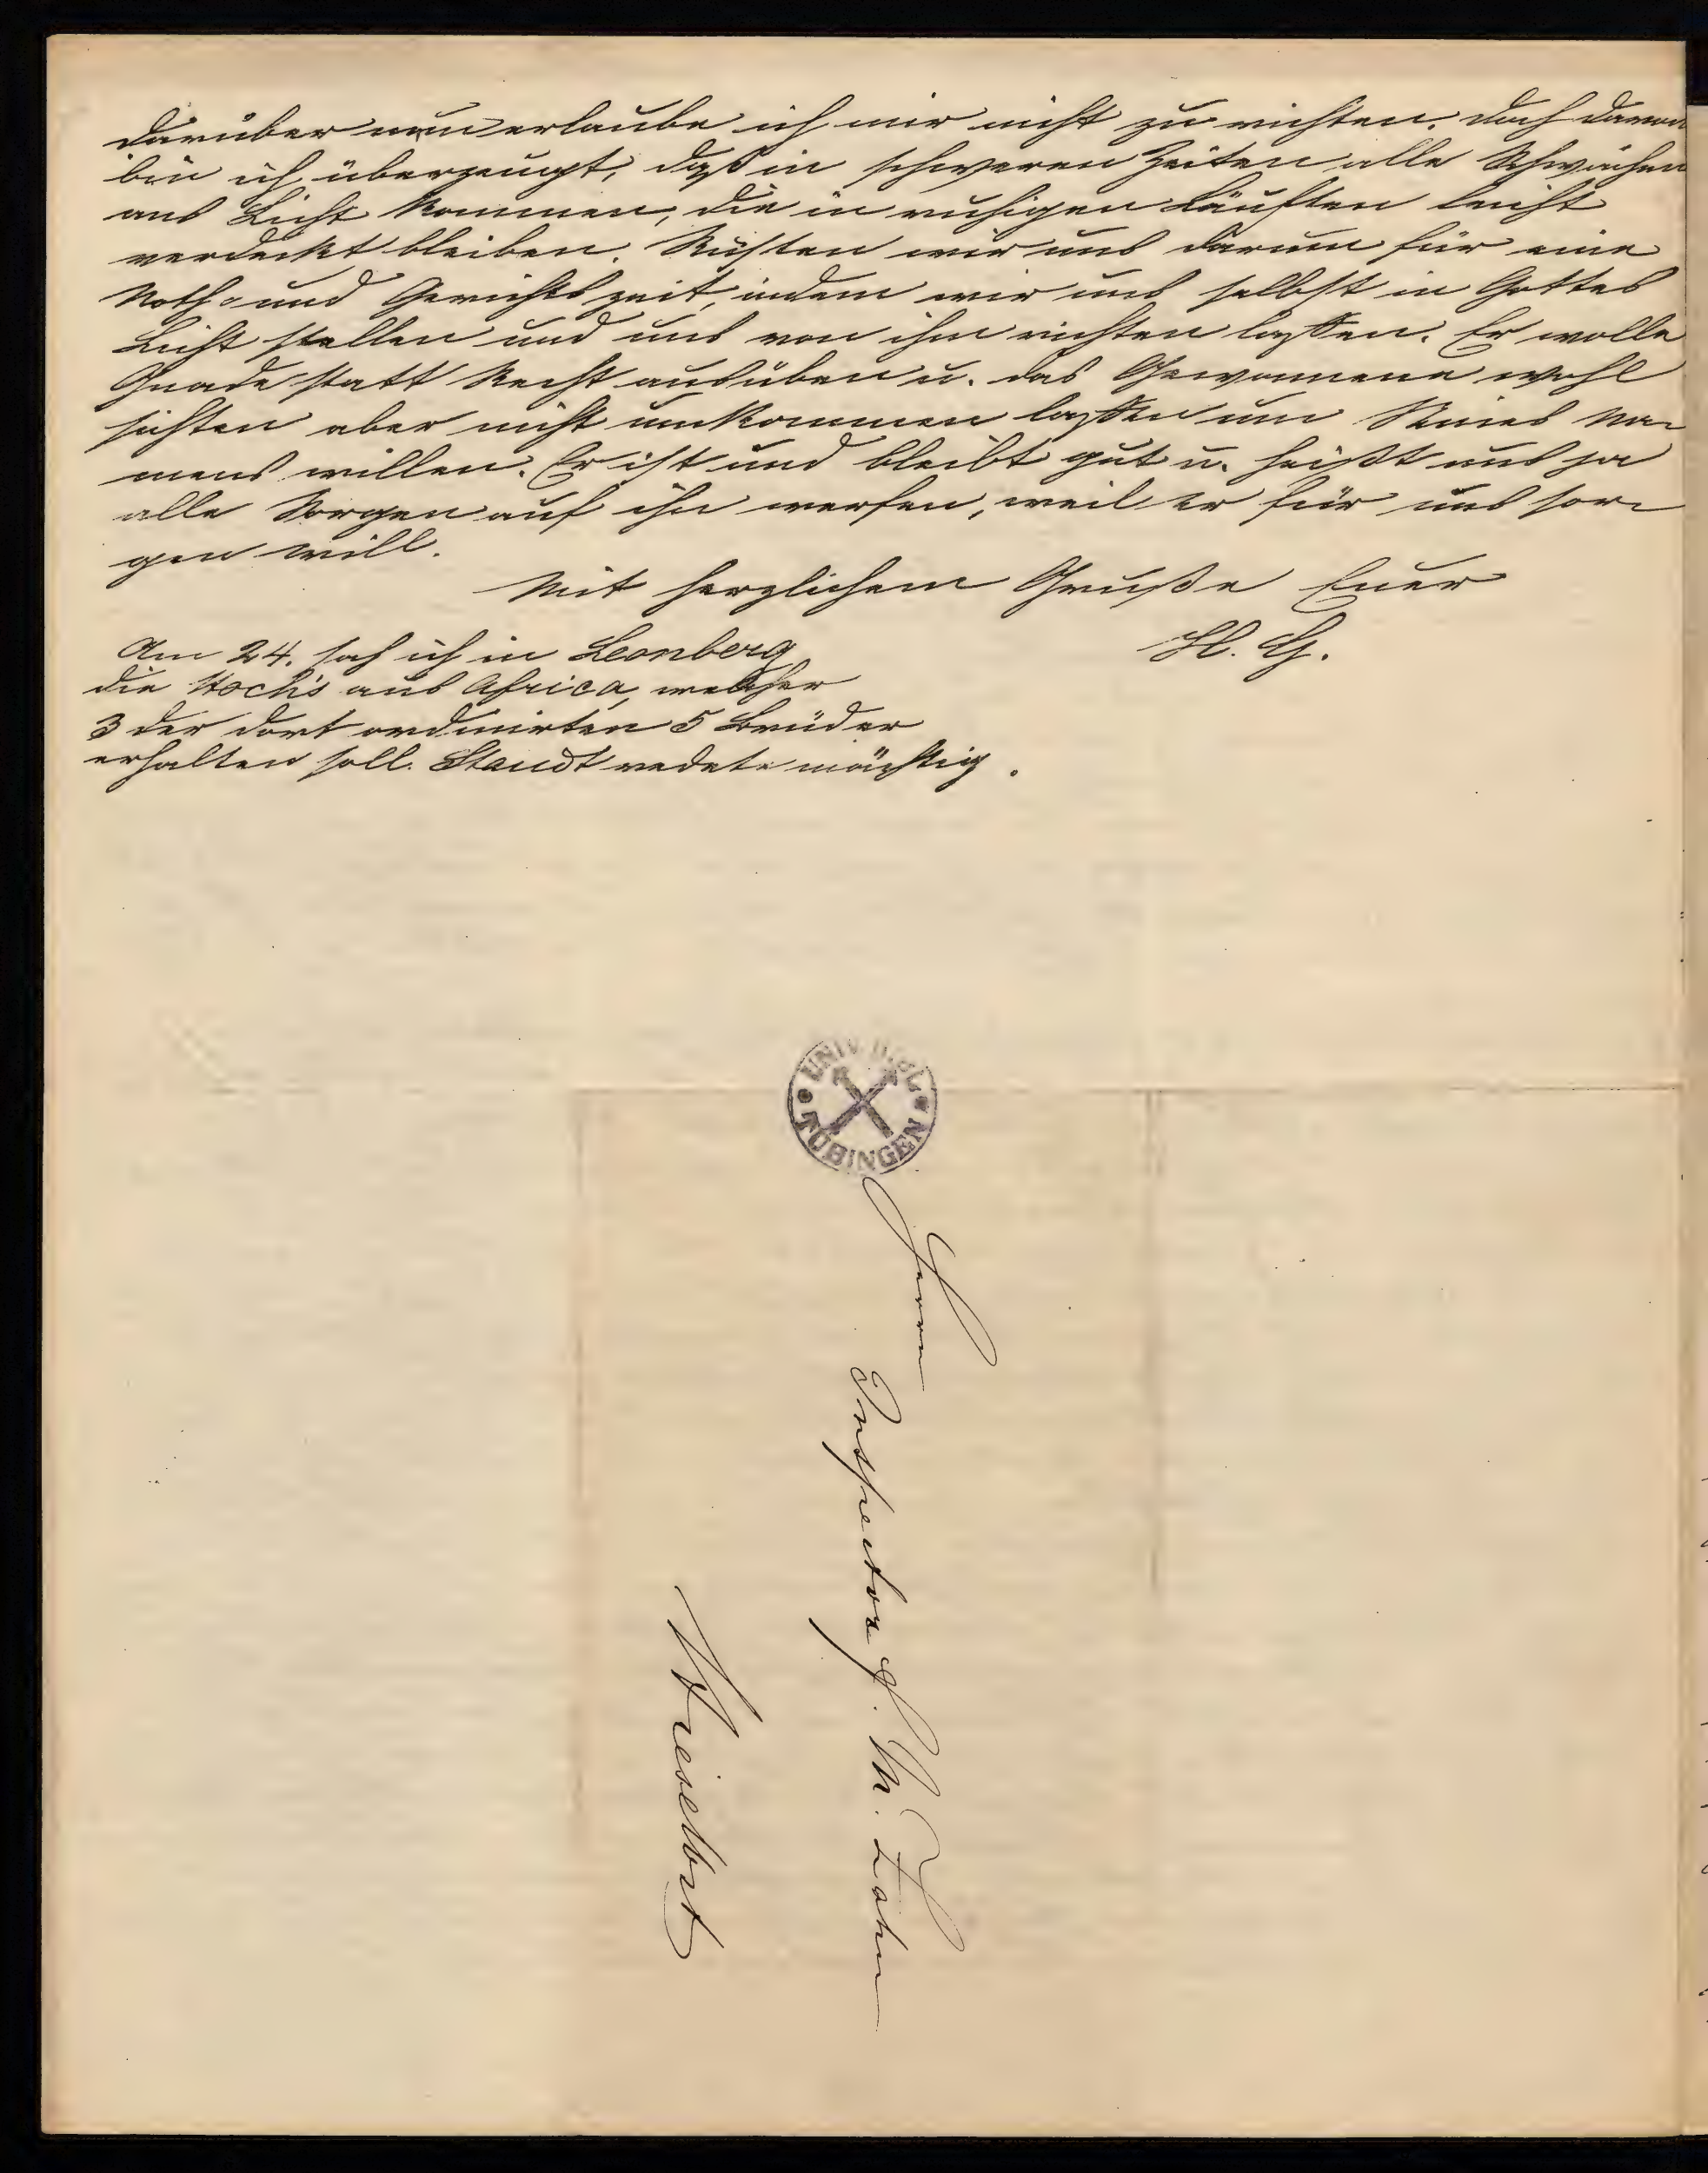 darüber nun erlaube ich mir nicht zu richten. Doch davon
bin ich überzeugt, daß in schweren Zeiten alle Schwächen
ans Licht kommen, die in ruhigen Läuften leicht
verdeckt bleiben. Rüsten wir uns darum für eine
Noth- und Gerichtszeit, indem wir uns selbst in Gottes
Licht stellen und uns von ihm richten lassen. Er wolle
Gnade statt Recht ausüben u. das Gewonnene wohl
sichten aber nicht umkommen lassen um Seines Na-
mens willen. Er ist und bleibt gut u. heißt uns ja
alle Sorgen auf ihn werfen, weil er für uns sor-
gen will.
Mit herzlichem Gruße Euer
H. G.
Am 24. sah ich in Leonberg
die Hoch's aus Africa, welcher
3 der dort ordinirten 5 Brüder
erhalten soll. Staudt redete mächtig.
UNIV. BIBL.
TÜBINGEN
Herrn
Inspector F. M. Zahn